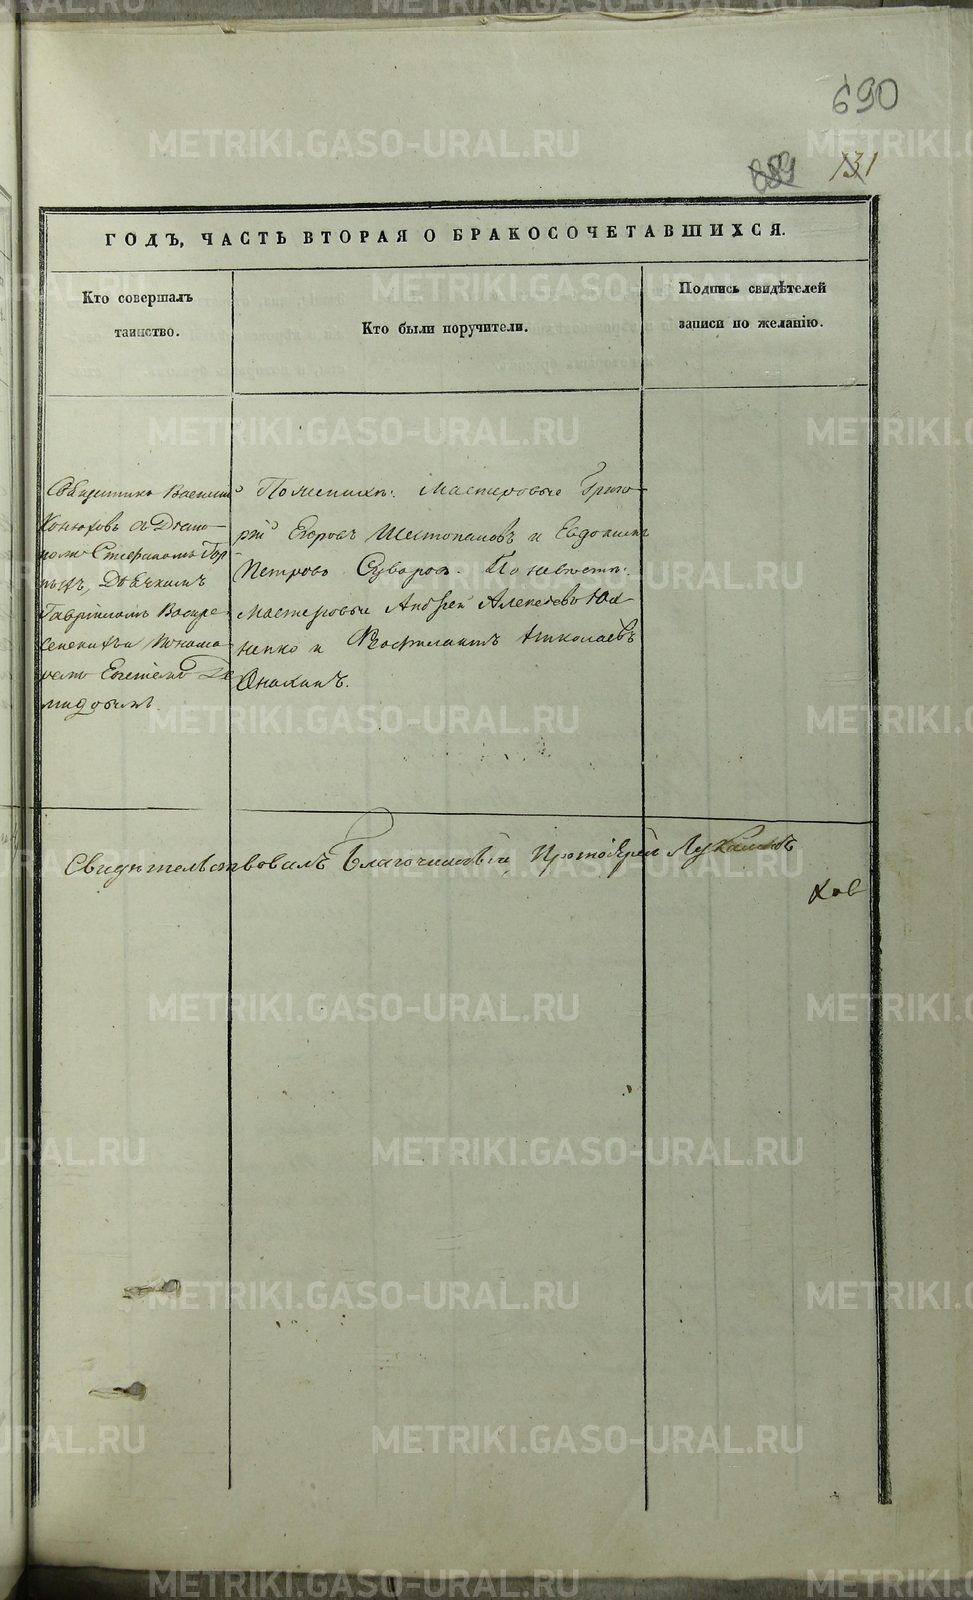 690
689 131
ГОДЪ, ЧАСТЬ ВТОРАЯ О БРАКОСОЧЕТАВШИХСЯ.
Кто совершалъ
таинство.
Кто были поручители.
Подпись свидѣтелей
записи по желанію.
Священникъ Василій
Конюховъ съ Діако-
номъ Стефаномъ Гор
Дьячкомъ
Гавріиломъ Воскре-
сенскихъ и Понома-
ремъ Евгеніемъ Де
мидовымъ.
По женихѣ: Мастеровые Григо-
рій Егоровъ Шестопаловъ и Евдокимъ
Петровъ Суворовъ. По невѣстѣ:
Мастеровые Андрей Алексѣевъ Юх
ненко и Феофилактъ Николаевъ
Онохинъ.
Свидѣтельствовалъ Благочинный Протоіерей
ковъ
METRIKI.GASO-URAL.RU